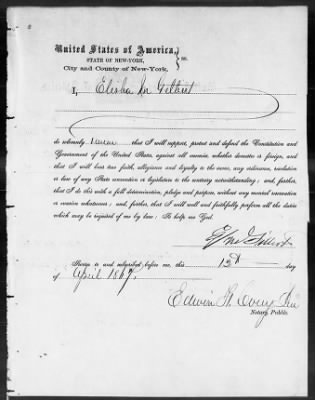 United States of America,
STATE OF NEW-YORK, } ss.
City and County of New-York,
I, Elisha M Gilbert
do solemnly swear that I will support, protect and defend the Constitution and
Government of the United States, against all enemies, whether domestic or foreign, and
that I will bear true faith, allegiance and loyalty to the same, any ordinance, resolution
or law of any State convention or legislature to the contrary notwithstanding; and, further,
that I do this with a full determination, pledge and purpose, without any mental reservation
or evasion whatsoever; and, further, that I will well and faithfully perform all the duties
which may be required of me by law: So help me God.
E M Gilbert
Sworn to and subscribed before me, this 13th day
of April 1867.
Edwin F. Corey
Notary Public.